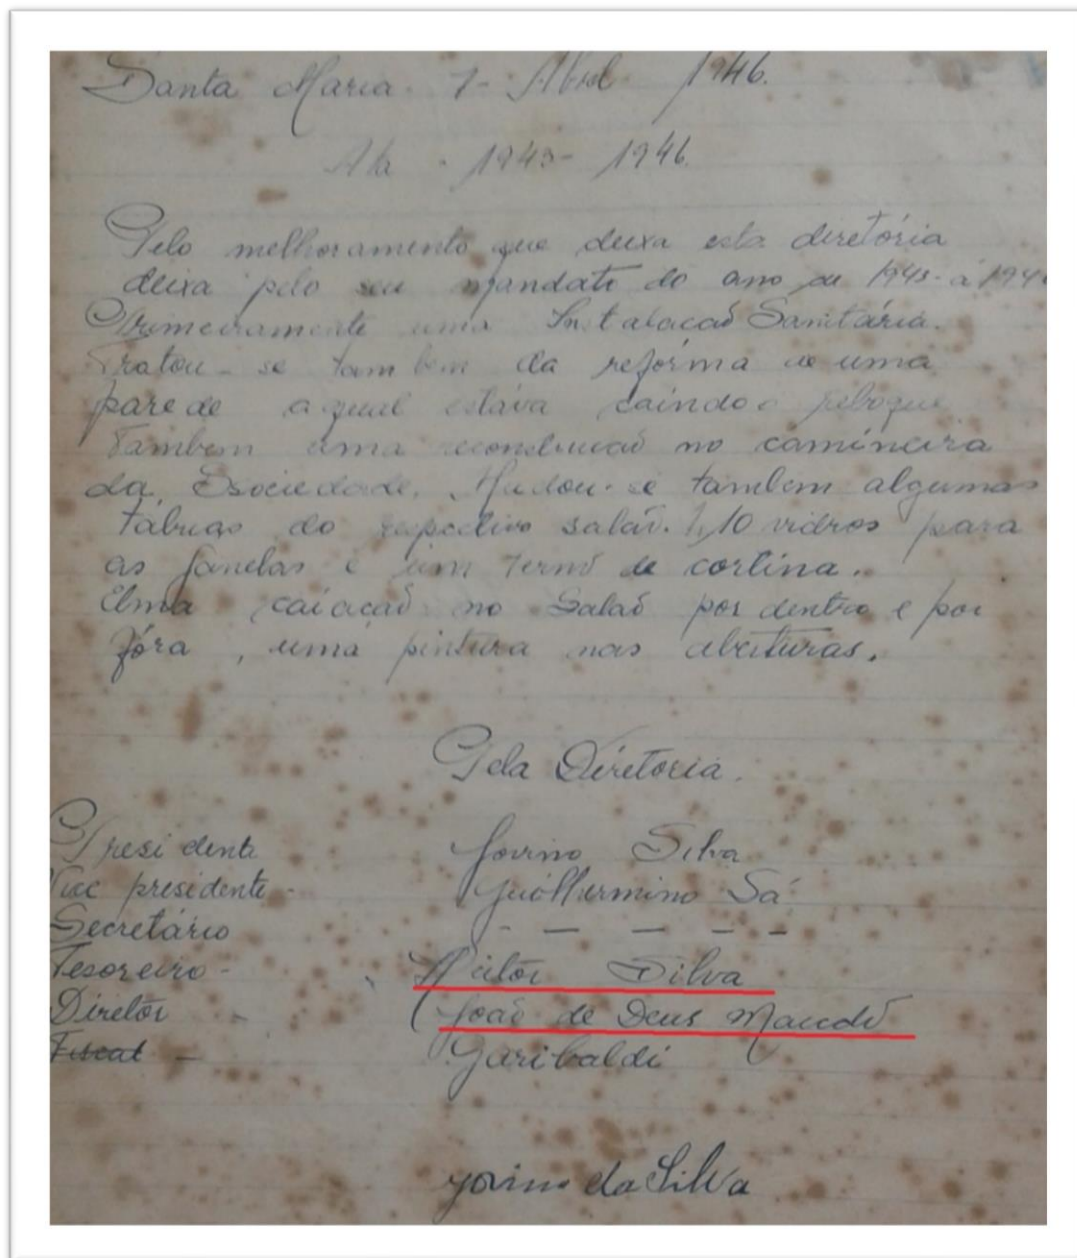 Santa Maria. 7- Abril 1946.
Ata - 1945- 1946.
Pelo melhoramento que deixa esta diretória
deixa pelo seu mandato do ano de 1945- á 194
Primeiramente uma Instalacaõ Sanitária.
Tratou-se tambem da refórma de uma
parede aqual estava caindo o reboque
Tambem uma reconstrucaõ no camineira
da Ssociedade. Mudou-se tambem algumas
tábuas do respectivo salaõ. 1,10 vidros para
as janelas e um terno de cortina.
Uma caiacaõ no Salaõ por dentro e por
fóra, uma pintura nas aberturas.
Pela Diretoria.
Presidente Jovino Silva
Vice presidente - Guilhermino Sá
Secretário - - - - - -
Tesoreiro - Heitor Silva
Diretôr - (João de Deus Macedo
Fiscal - Garibaldi
Jovino da Silva